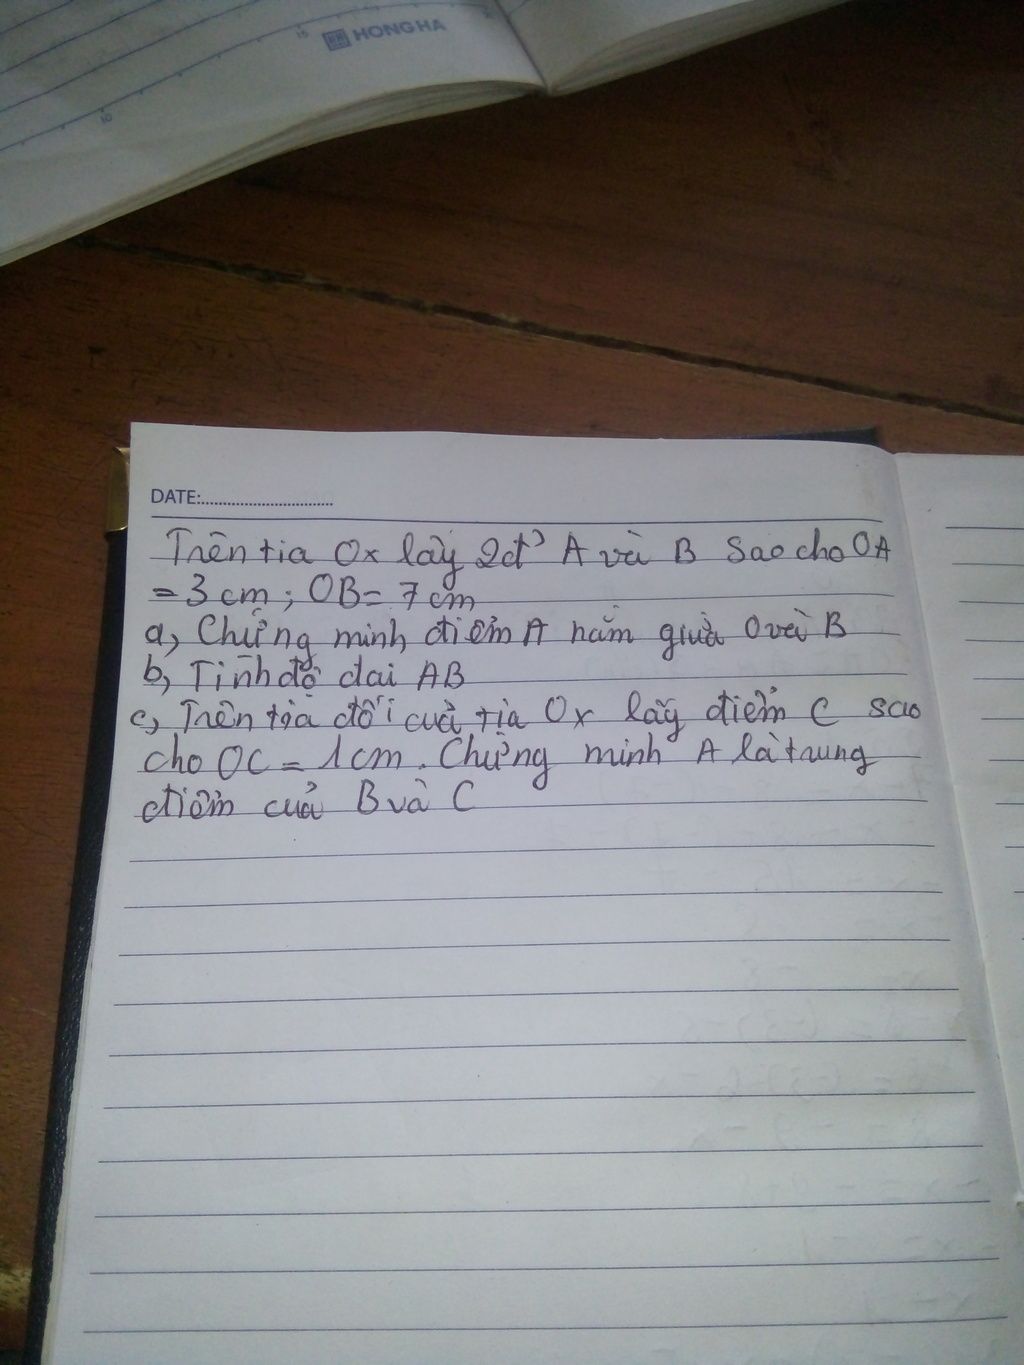 15
HONG HA
10
DATE:..............................
Trên tia Ox lấy 2đ' A và B sao cho OA
= 3 cm ; OB = 7 cm
a, Chứng minh điểm A nằm giữa O và B
b, Tính độ dài AB
c, Trên tia đối của tia Ox lấy điểm C sao
cho OC = 1 cm . Chứng minh A là trung
điểm của B và C